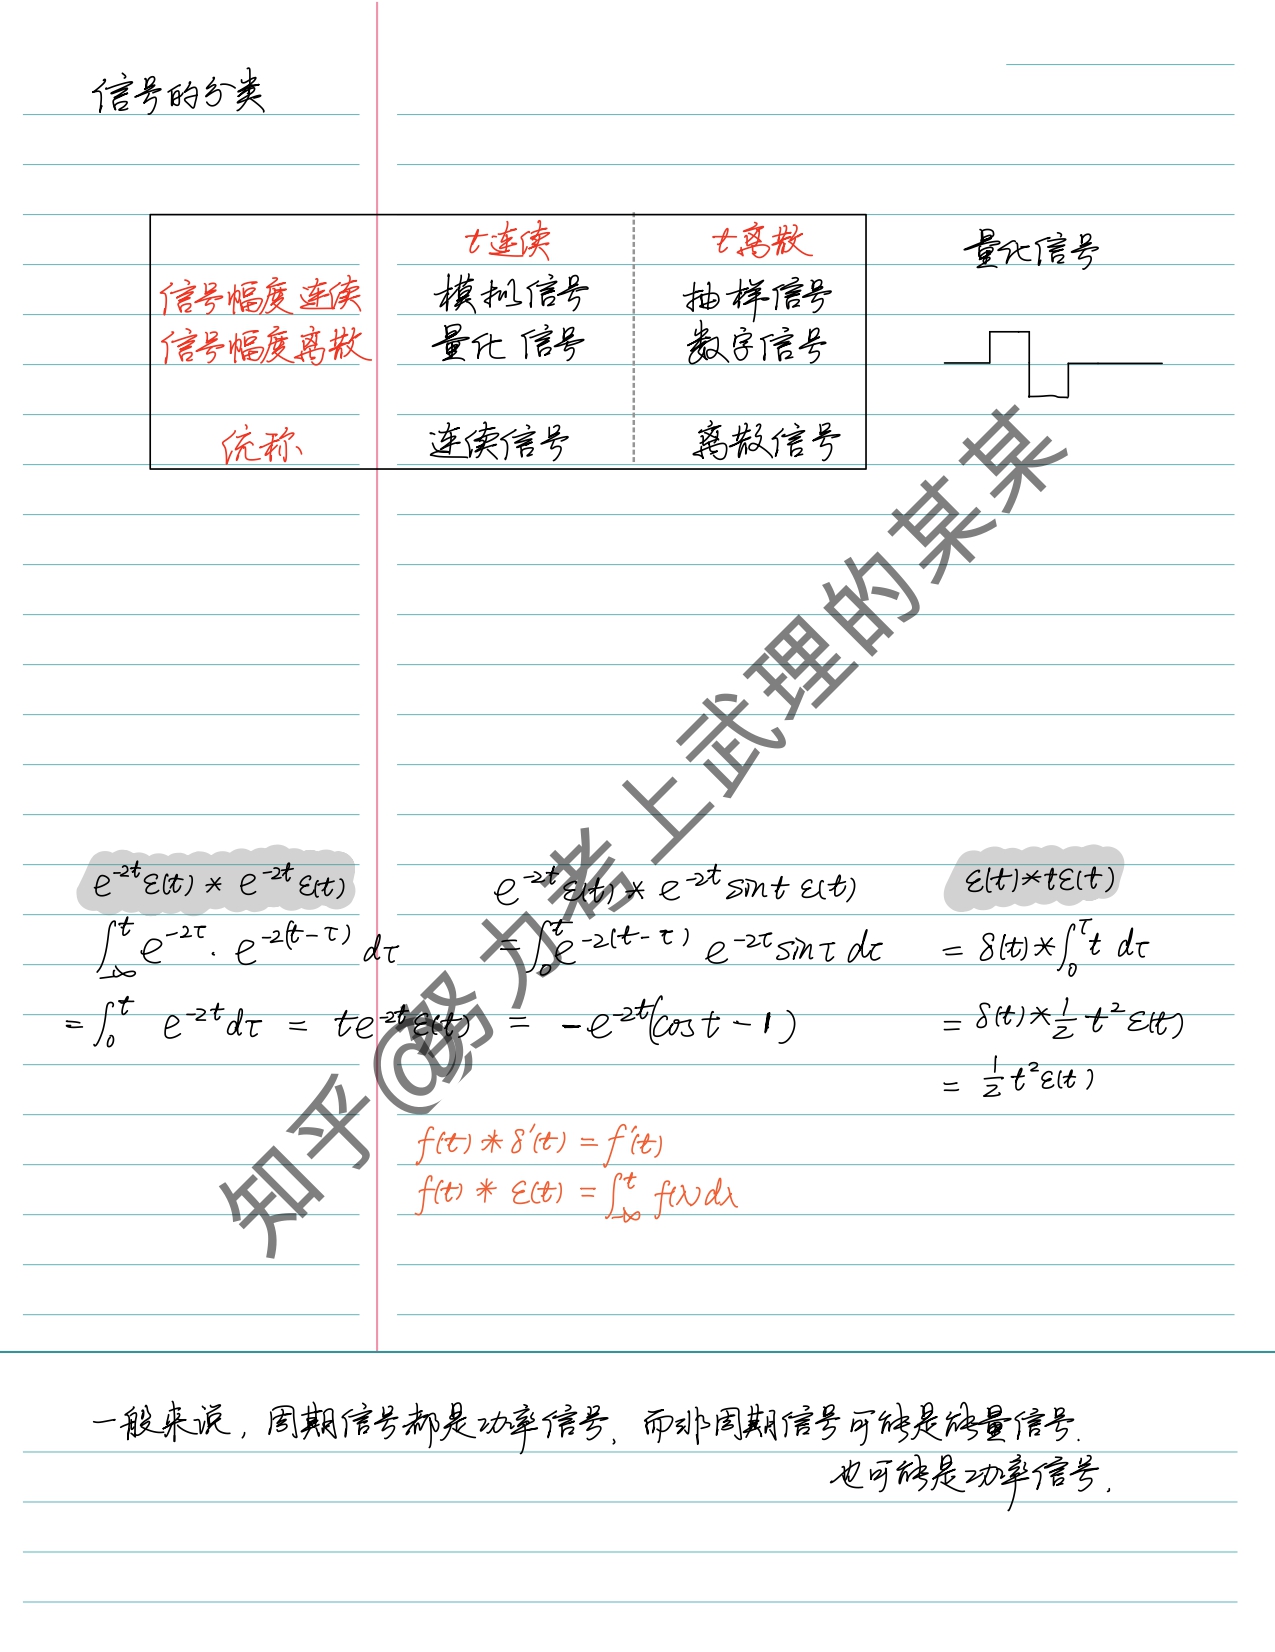 信号的分类
t连续 t离散
信号幅度连续 模拟信号 抽样信号
信号幅度离散 量化信号 数字信号
统称 连续信号 离散信号
量化信号
e^{-2t}ε(t) * e^{-2t}ε(t)
∫_{-∞}^{t} e^{-2τ} · e^{-2(t-τ)} dτ
= ∫_0^t e^{-2t} dτ = te^{-2t}ε(t)
e^{-2t}ε(t) * e^{-2t} sint ε(t)
= ∫_0^t e^{-2(t-τ)} e^{-2τ} sinτ dτ
= -e^{-2t}(cost-1)
ε(t)*tε(t)
= δ(t)*∫_0^τ t dτ
= δ(t)*1/2 t² ε(t)
= 1/2 t² ε(t)
f(t) * δ'(t) = f'(t)
f(t) * ε(t) = ∫_{-∞}^{t} f(λ)dλ
一般来说,周期信号都是功率信号,而非周期信号可能是能量信号.
也可能是功率信号.
知乎@努力考上武理的某某